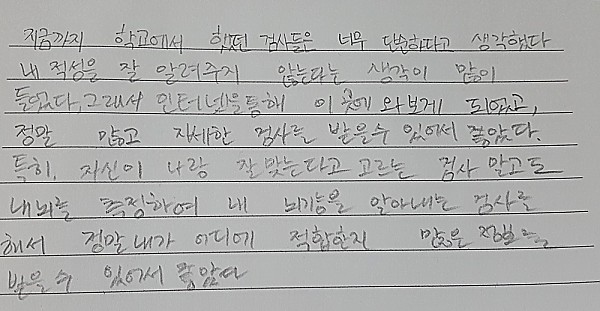 지금까지 학교에서 했던 검사들은 너무 단순하다고 생각했다
내 적성을 잘 알려주지 않는다는 생각이 많이
들었다. 그래서 인터넷을 통해 이 곳에 와보게 되었고,
정말 많고 자세한 검사를 받을수 있어서 좋았다.
특히, 자신이 나랑 잘 맞는다고 고르는 검사 말고도
내뇌를 측정하여 내 뇌기능을 알아내는 검사를
해서 정말 내가 어디에 적합한지 많은 정보를
받을 수 있어서 좋았다